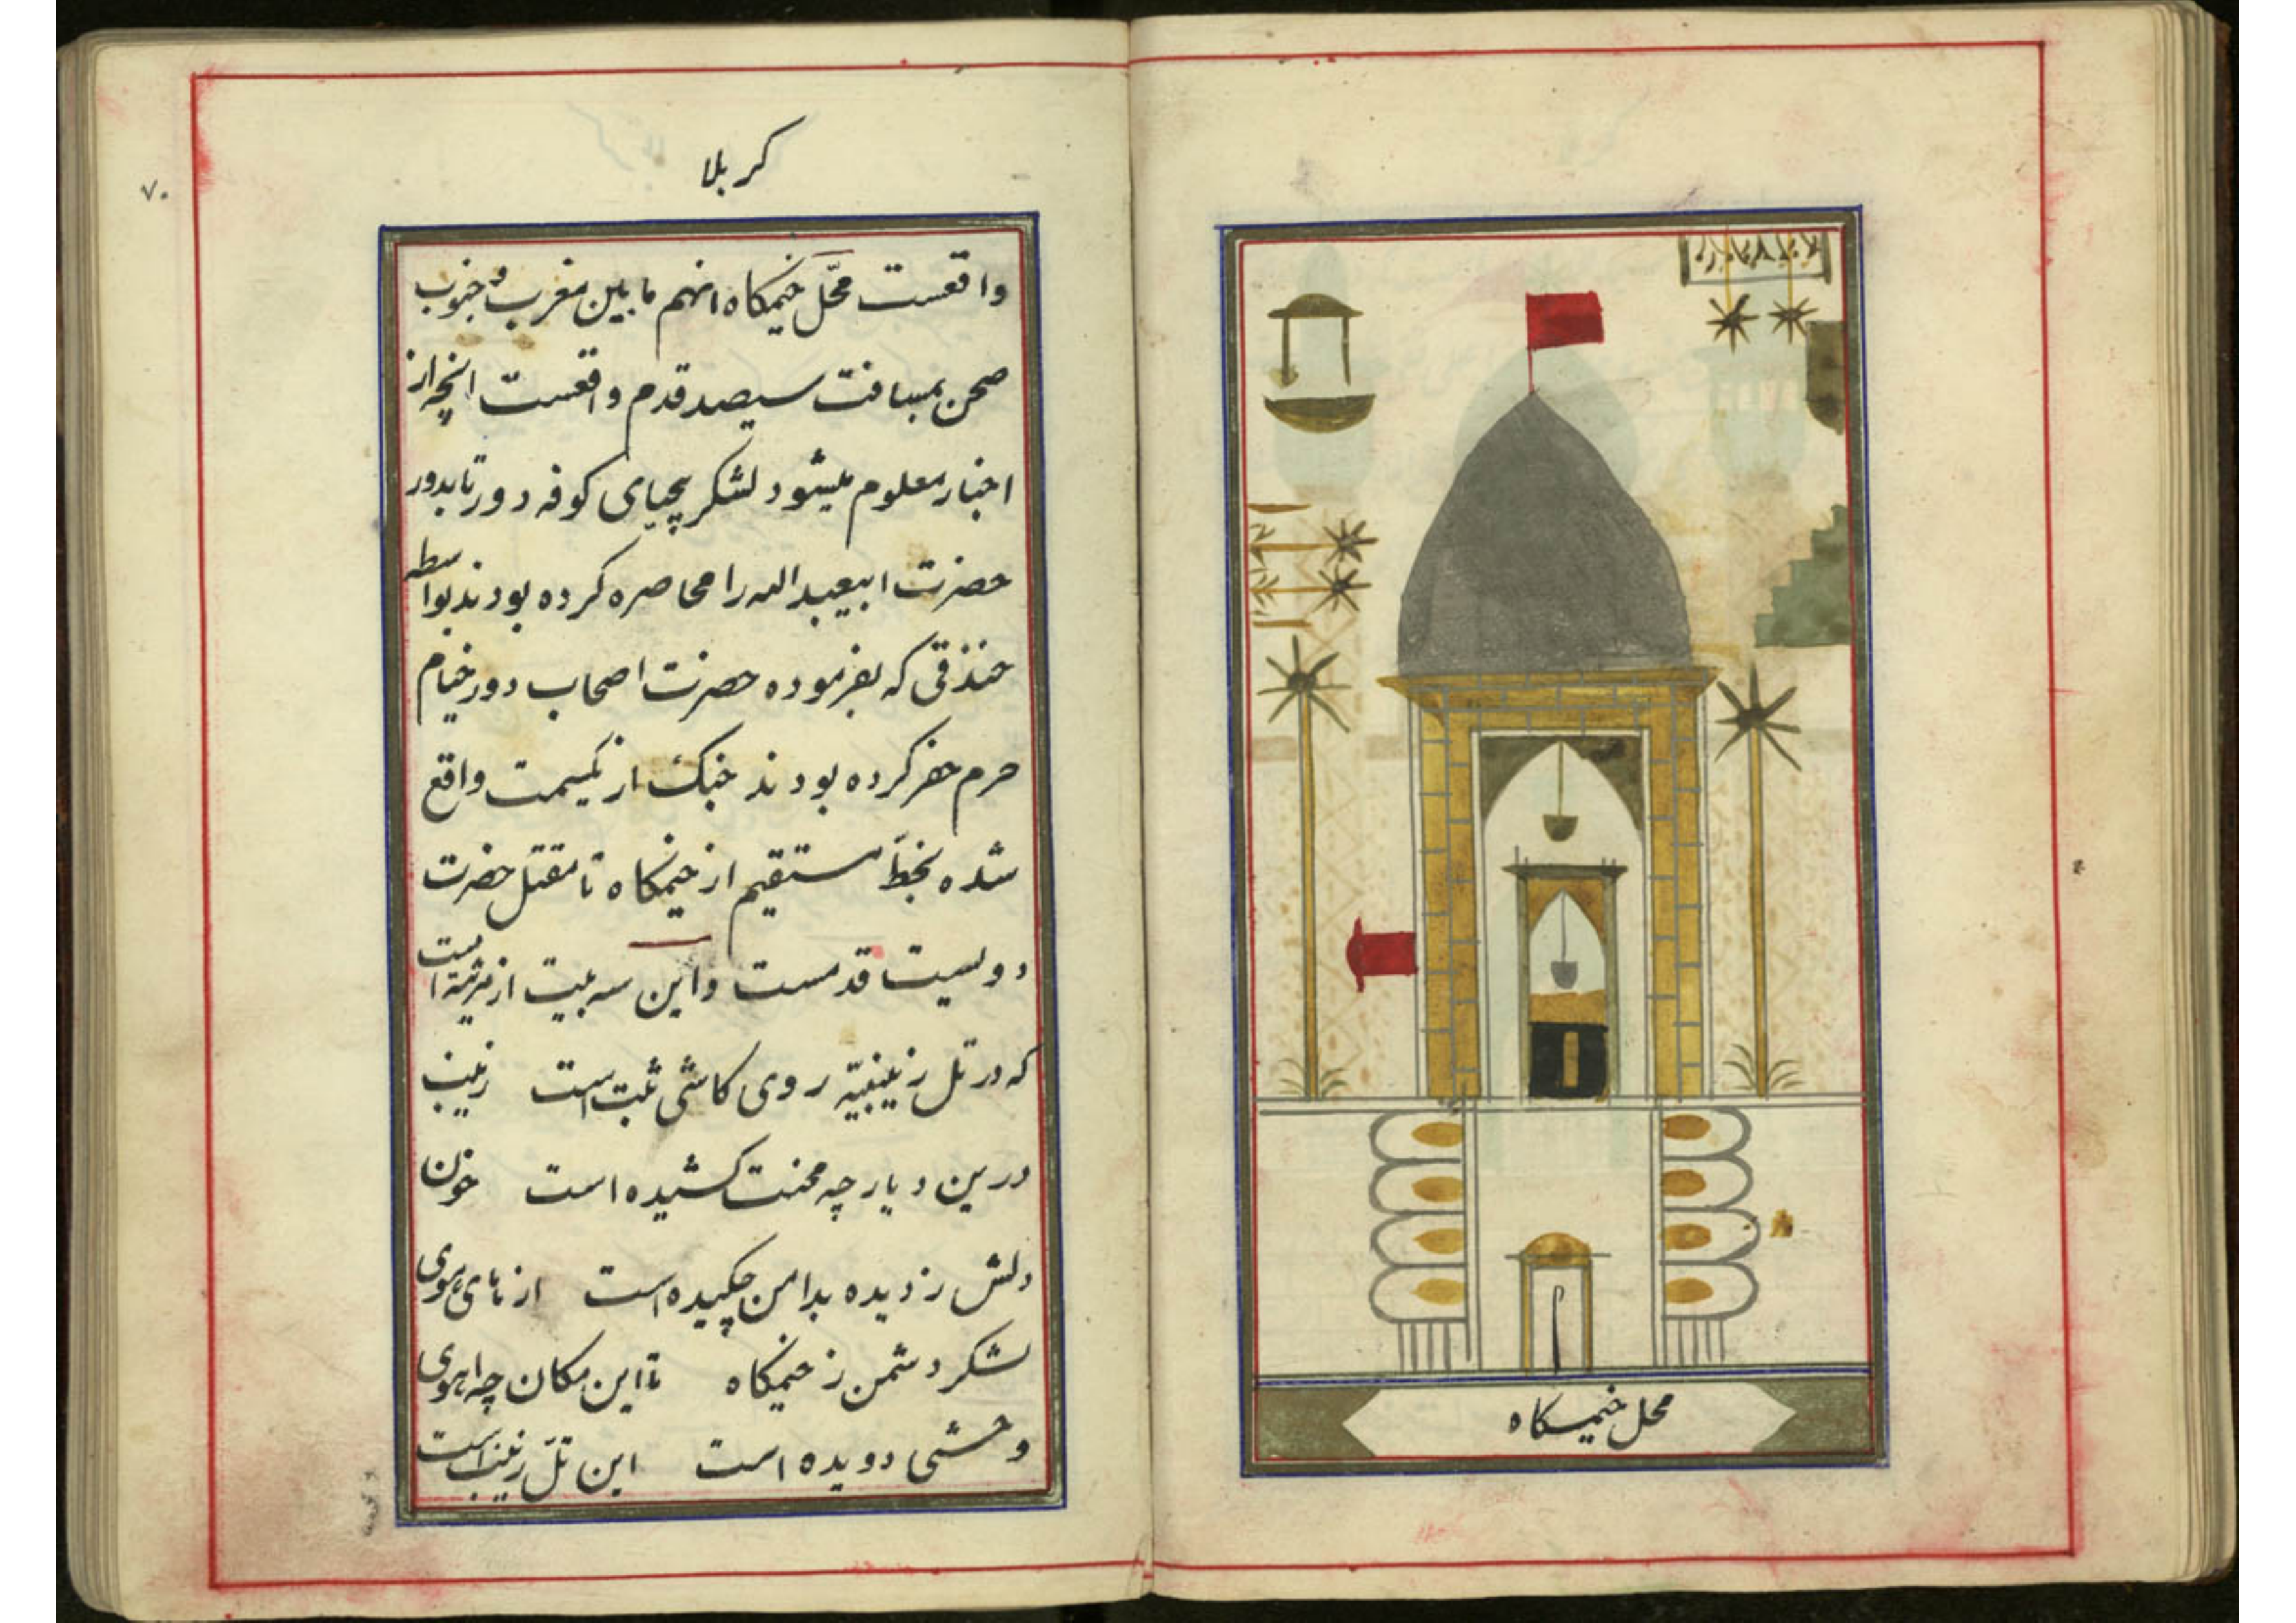 محل خیمکاه
کربلا
۷۰
واقعست محّل خیمکاه انهم مابین مغرب و جنوب
صحن بمسافت سیصد قدم واقعست انچه از
اخبار معلوم میشود لشکر بیحیای کوفه دور تا بدور
حضرت ابیعبدالله را محاصره کرده بودند بواسطه
خندقی که بفرموده حضرت اصحاب دور خیام
حرم حفر کرده بودند جنک از یکسمت واقع
شده بخطّ مستقیم از خیمکاه تا مقتل حضرت
دویست قدمست و این سه بیت از مرثیه است
که در تل زینبیّه روی کاشی ثبت است زینب
درین دیار چه محنت کشیده است خون
دلش ز دیده بدامن چکیده است از های هوی
لشکر دشمن ز خیمکاه تا این مکان چه اهوی
وحشی دویده است این تلّ زینب است